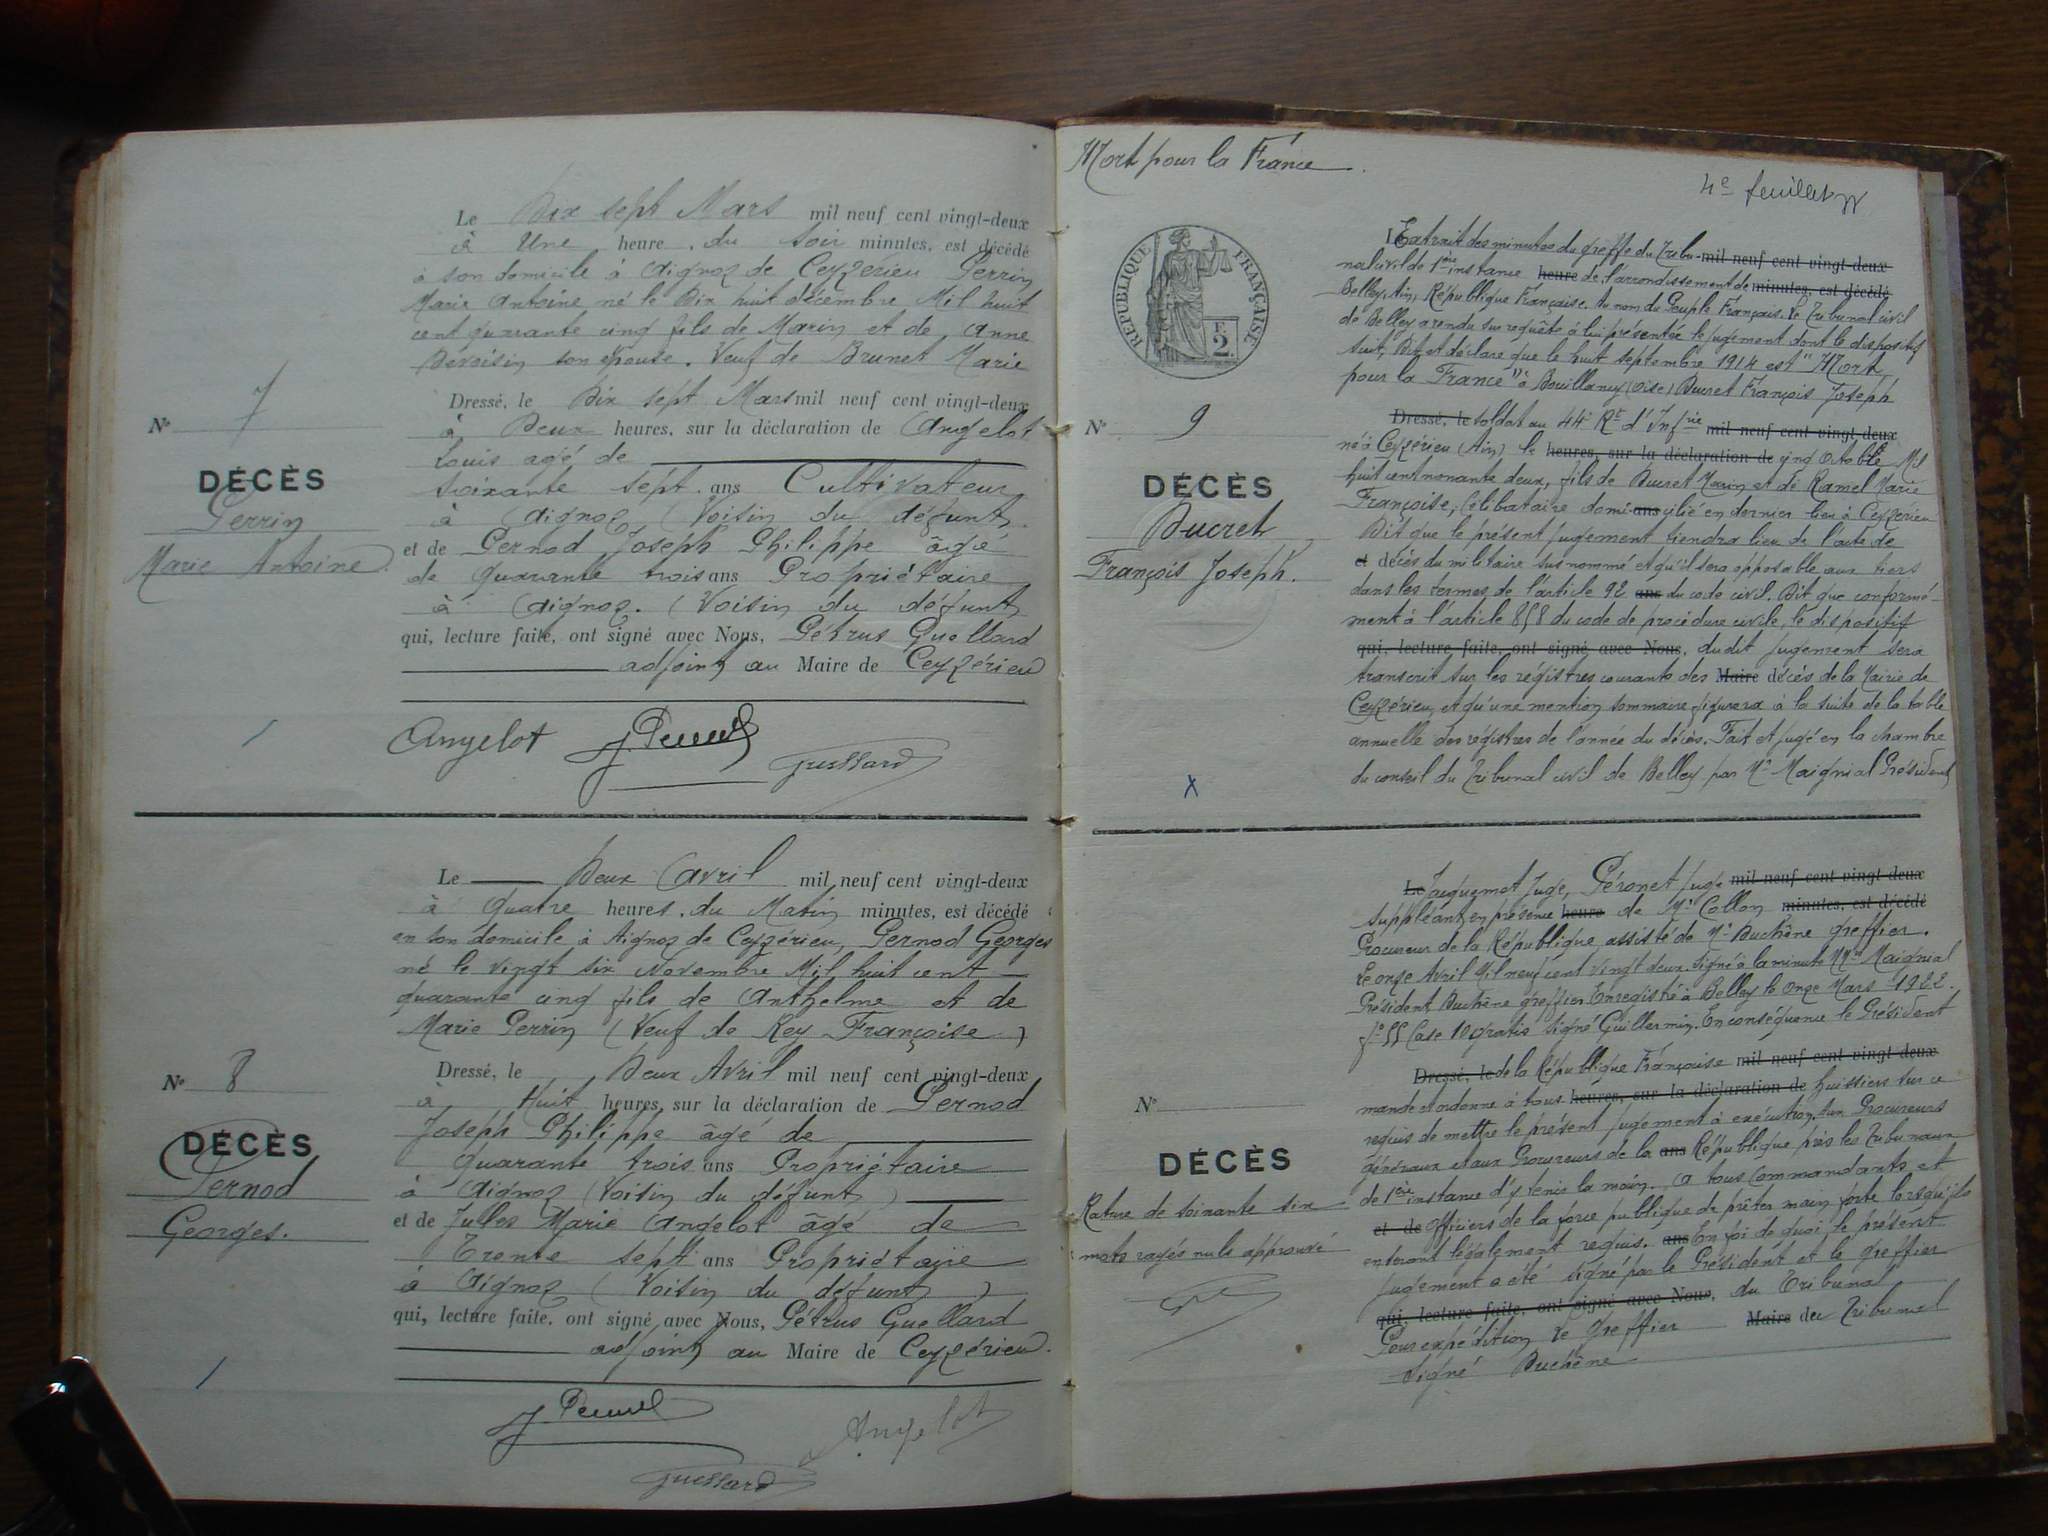 Le Dix sept Mars mil neuf cent vingt-deux
à Une heure, du soir minutes, est décédé
à son domicile à Aignoz de Ceyzérieu Perrin
Marie Antoine né le Dix huit décembre Mil huit
cent quarante cinq fils de Marin et de Anne
son épouse. Veuf de Brunet Marie
Dressé, le Dix sept Mars mil neuf cent vingt-deux
à Deux heures, sur la déclaration de Angelot
Louis agé de
soixante sept ans Cultivateur
à Aignoz (Voisin du défunt
et de Pernod Joseph Philippe âgé
de Quarante trois ans Propriétaire
à Aignoz. (Voisin du défunt
qui, lecture faite, ont signé avec Nous, Pétrus Guellard
adjoint au Maire de Ceyzérieu
N° 7
DÉCÈS
Perrin
Marie Antoine.
Angelot
Le Deux Avril mil neuf cent vingt-deux
à Quatre heures, du Matin minutes, est décédé
en son domicile à Aignoz de Ceyzérieu, Pernod Georges
né le vingt six Novembre Mil huit cent
quarante cinq fils de Anthelme et de
Marie Perrin (Veuf de Rey Françoise)
Dressé, le Deux Avril mil neuf cent vingt-deux
à Huit heures, sur la déclaration de Pernod
Joseph Philippe âgé de
quarante trois ans Propriétaire
à Aignoz (Voisin du défunt)
et de Jules Marie Angelot âgé de
Trente sept ans Propriétaire
à Aignoz (Voisin du défunt)
qui, lecture faite, ont signé avec Nous, Pétrus Guellard
adjoint au Maire de Ceyzérieu.
N° 8
DÉCÈS
Pernod
Georges.
Angelot
Mort pour la France
4e feuillet
RÉPUBLIQUE FRANÇAISE
F.
2.
N° 9
DÉCÈS
Ducret
François Joseph.
X
Le Extrait des minutes du greffe du Tribu- mil neuf cent vingt-deux
nal civil de 1ère instance heure de l'arrondissement de minutes, est décédé
Belley, Ain, République Française. Au nom du Peuple Français. Le Tribunal civil
de Belley a rendu sur requête à lui présentée le jugement dont le dispositif
suit, Dit et déclare que le huit septembre 1914 est "Mort
pour la France" à Bouillancy (Oise) Ducret François Joseph
Dressé, le soldat au 44e Rt d'Infrie mil neuf cent vingt-deux
né à Ceyzérieu (Ain) le heures, sur la déclaration de cinq Octobre Mil
huit cent nonante deux, fils de Ducret Marin et de Ramel Marie
Françoise, Célibataire domi- ans cilié en dernier lieu à Ceyzerieu
Dit que le présent jugement tiendra lieu de l'acte de
et décès du militaire susnommé et qu'il sera opposable aux tiers
dans les termes de l'article 92 ans du code civil. Dit que conformé-
ment à l'article 858 du code de procédure civile, le dispositif
qui, lecture faite, ont signé avec Nous, dudit jugement sera
transcrit sur les régistres courants des Maire décès de la Mairie de
Ceyzérieu, et qu'une mention sommaire figurera à la suite de la table
annuelle des régistres de l'année du décès. Fait et jugé en la chambre
du conseil du Tribunal civil de Belley par Mr Maignial Président
Le Jacquemot Juge, Péronet Juge mil neuf cent vingt-deux
suppléant, en présence heure de Mr Collon minutes, est décédé
Procureur de la République assisté de Mr Buchêne greffier.
Le onze Avril Mil neuf cent vingt deux. Signé à la minute MMrs Maignial
Président Buchêne greffier. Enregistré à Belley le onze Mars 1922.
fo 55 Case 10 gratis signé Guillermin. En conséquence le Président
Dressé, le de la République Française mil neuf cent vingt-deux
mande et ordonne à tous heures, sur la déclaration de huissiers sur ce
requis de mettre le présent jugement à exécution, aux Procureurs
généraux et aux Procureurs de la ans République près les Tribunaux
de 1ère instance d'y tenir la main. A tous Commandants et
et de Officiers de la force publique de prêter main forte lorsqu'ils
en seront légalement requis. ans En foi de quoi, le présent
jugement a été signé par le Président et le greffier
qui, lecture faite, ont signé avec Nous, du Tribunal
Pour expédition Le Greffier Maire du Tribunal
Signé Buchêne
N°
DÉCÈS
Rature de soixante six
mots rayés nuls approuvé